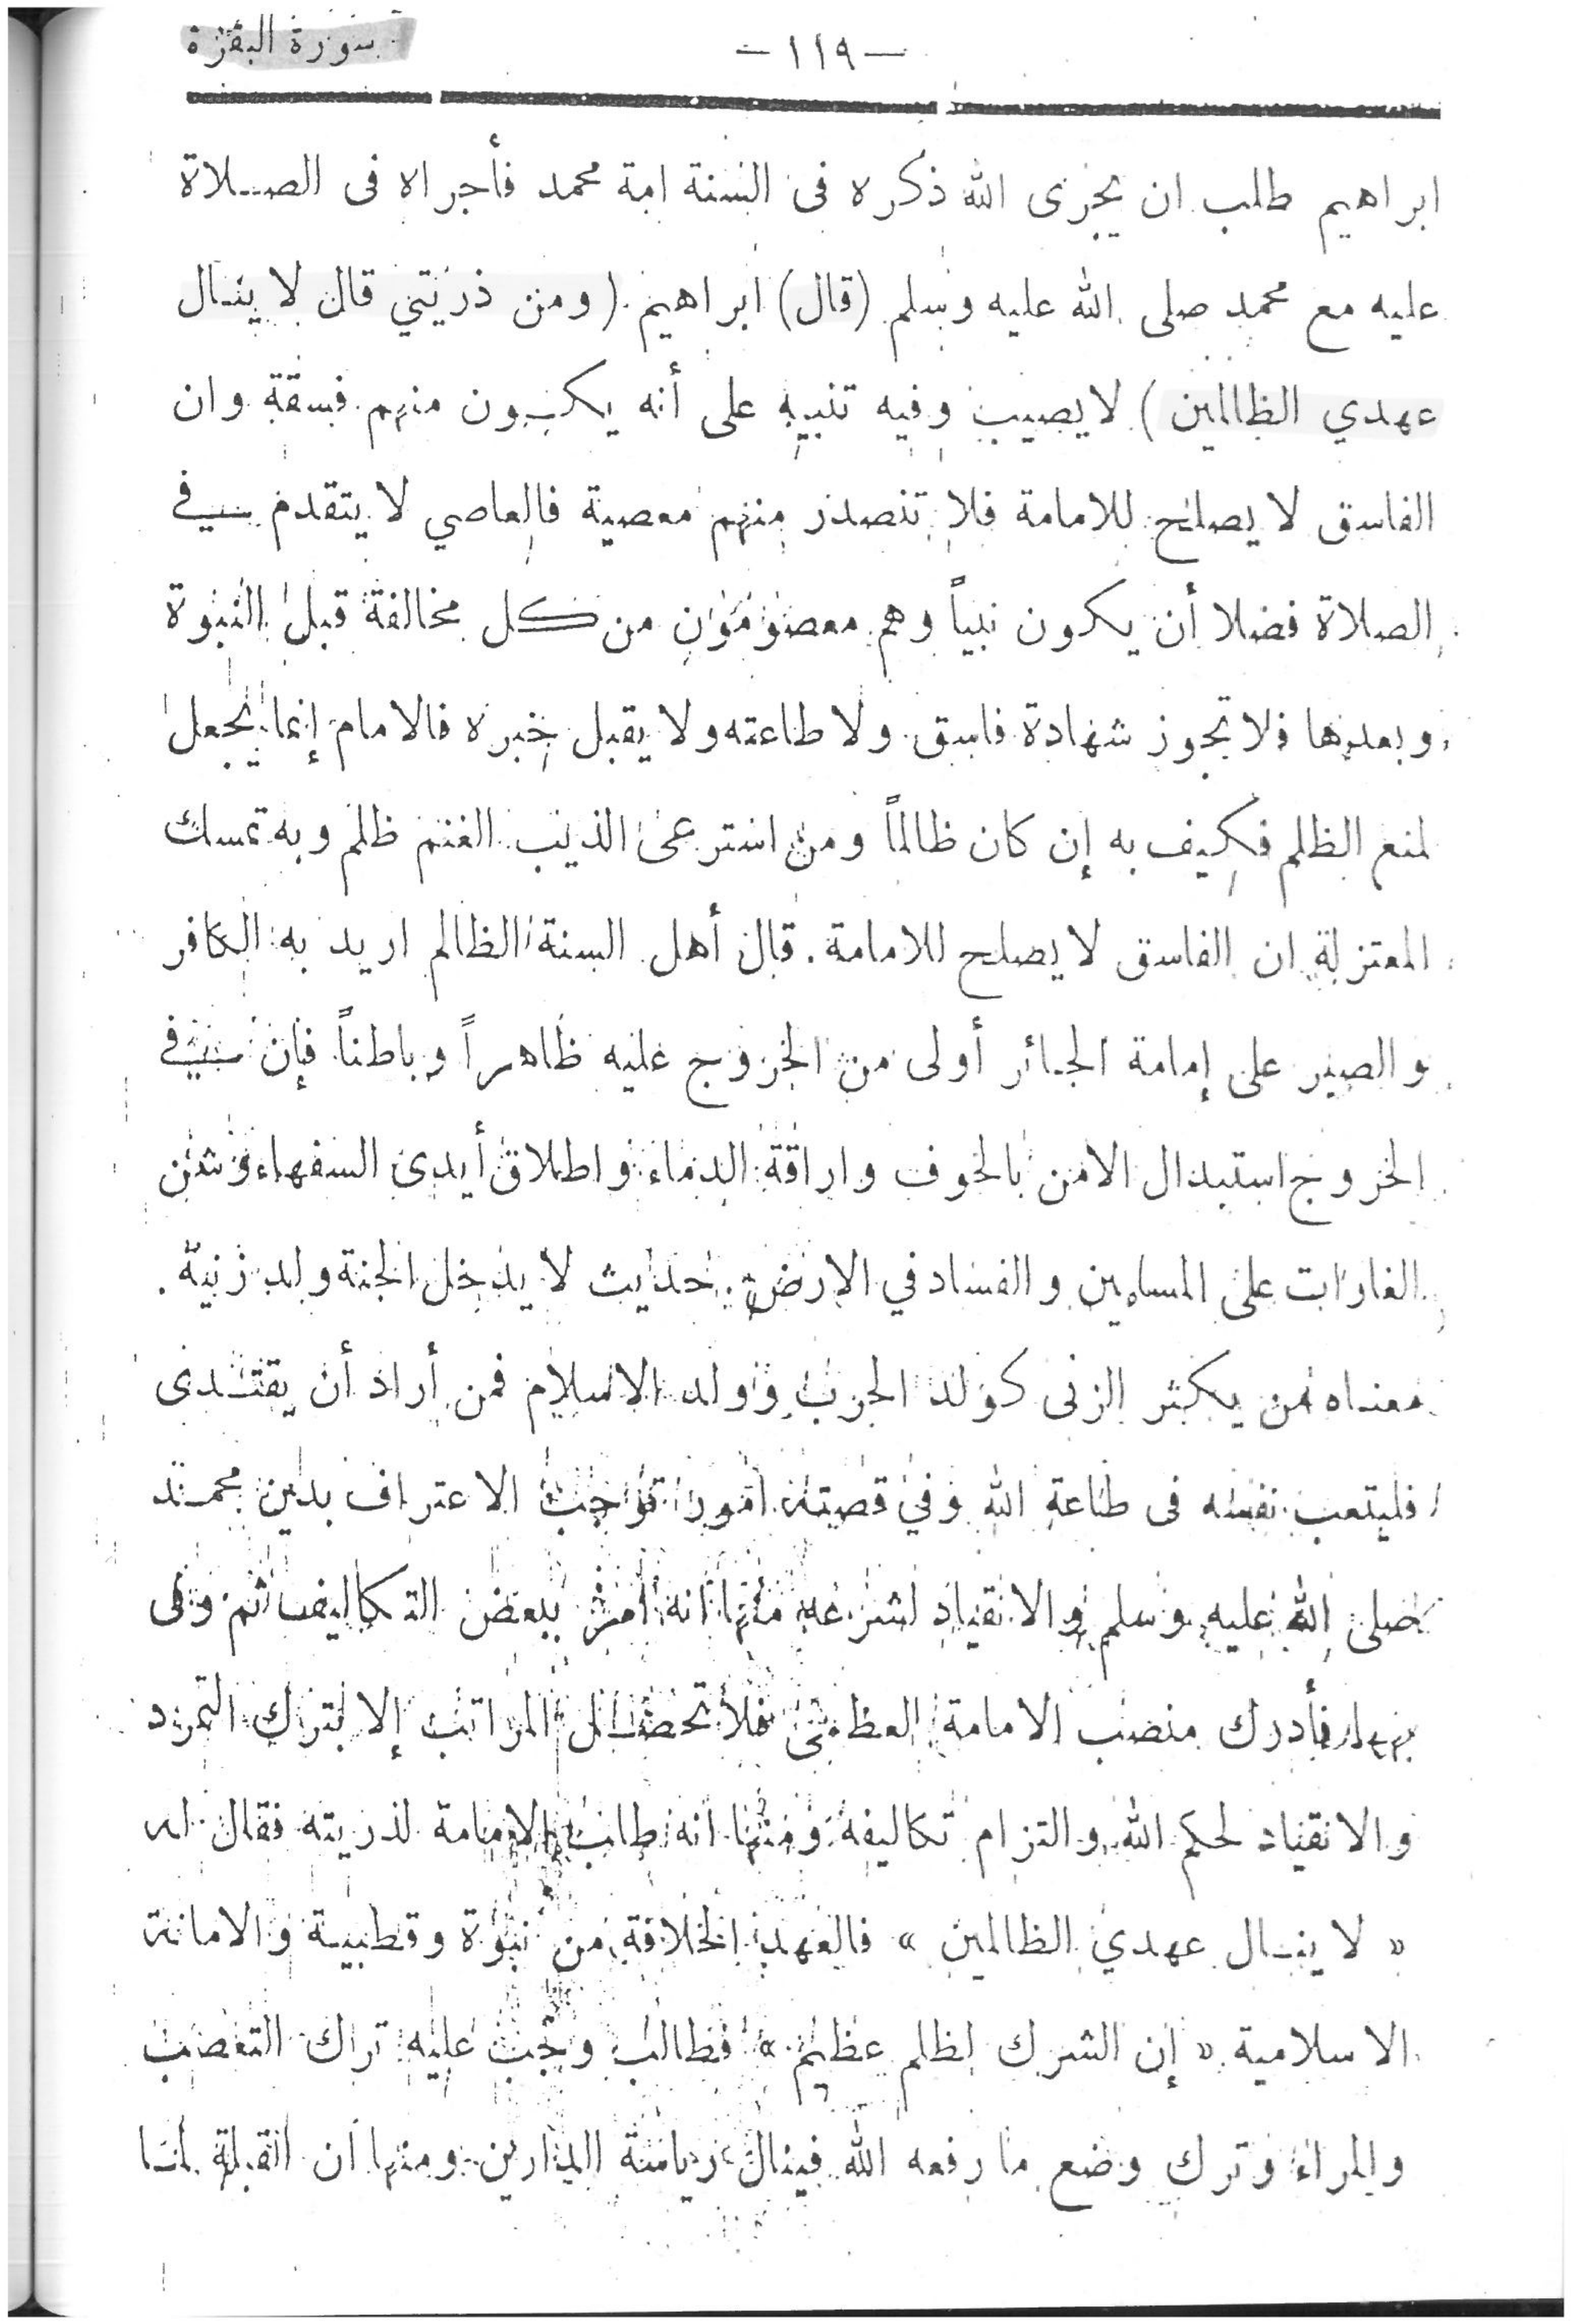 سورة البقرة
— ١١٩ —
ابراهيم طلب ان يجرى الله ذكره فى السنة امة محمد فأجراه فى الصلاة
عليه مع محمد صلى الله عليه وسلم (قال) ابراهيم (ومن ذريتي قال لا ينال
عهدي الظالمين) لا يصيب وفيه تنبيه على أنه يكون منهم فسقة وان
الفاسق لا يصلح للامامة فلا تصدر منهم معصية فالعاصي لا يتقدم في
الصلاة فضلا أن يكون نبياً وهم معصومون من كل مخالفة قبل النبوة
وبعدها فلا تجوز شهادة فاسق ولا طاعته ولا يقبل خبره فالامام إنما يجعل
لمنع الظلم فكيف به إن كان ظالماً ومن استرعى الذيب الغنم ظلم وبه تمسك
المعتزلة ان الفاسق لا يصلح للامامة. قال أهل السنة الظالم اريد به الكافر
والصبر على إمامة الجائر أولى من الخروج عليه ظاهراً وباطناً فإن في
الخروج استبدال الامن بالخوف واراقة الدماء واطلاق أيدى السفهاء وشن
الغارات على المسلمين والفساد في الارض. حديث لا يدخل الجنة ولد زنية.
معناه من يكثر الزنى كولد الحرب وولد الاسلام فمن أراد أن يقتدى
فليتعب نفسه فى طاعة الله وفي قصيته امور توجب الاعتراف بدين محمد
صلى الله عليه وسلم والانقياد لشرعه منها انه أمر ببعض التكاليف ثم وفى
بها فأدرك منصب الامامة العظمى فلا تحصل المراتب إلا بترك التمرد
والانقياد لحكم الله والتزام تكاليفه ومنها انه طلب الامامة لذريته فقال له
« لا ينال عهدي الظالمين » فالعهد الخلافة من نبوة وقطبية والامانة
الاسلامية « إن الشرك لظلم عظيم » فطالب وجب عليه تراك التعصب
والمراء وترك وضع ما رفعه الله فينال رياسة الدارين ومنها ان القبلة لما